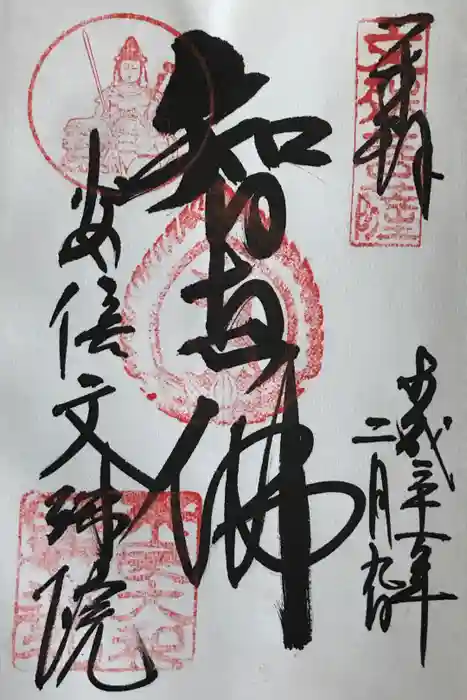 奉拝
平成三十一年
二月九日
智恵佛
安倍文殊院